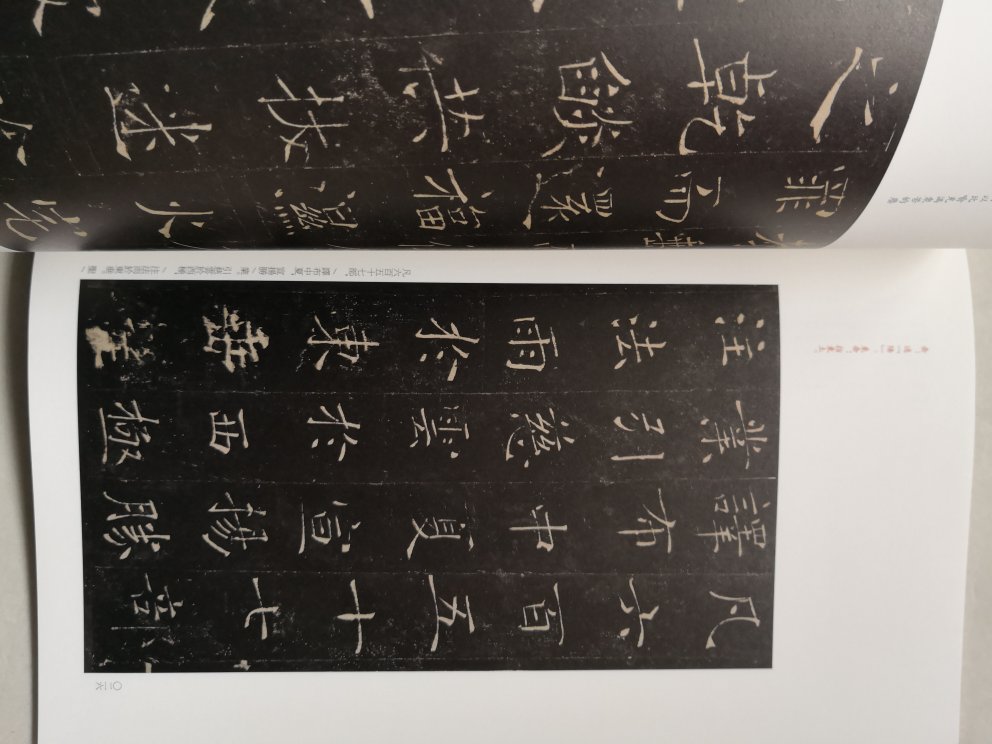 罪而還福濕火宅
之乾燄共拔迷
凡六百五十七部
譯布中夏宣揚勝
業引慈雲於西極
注法雨於東垂聖
凡六百五十七部，/譯布中夏，宣揚勝/業。引慈雲於西極，/注法雨於東垂。聖
〇二六